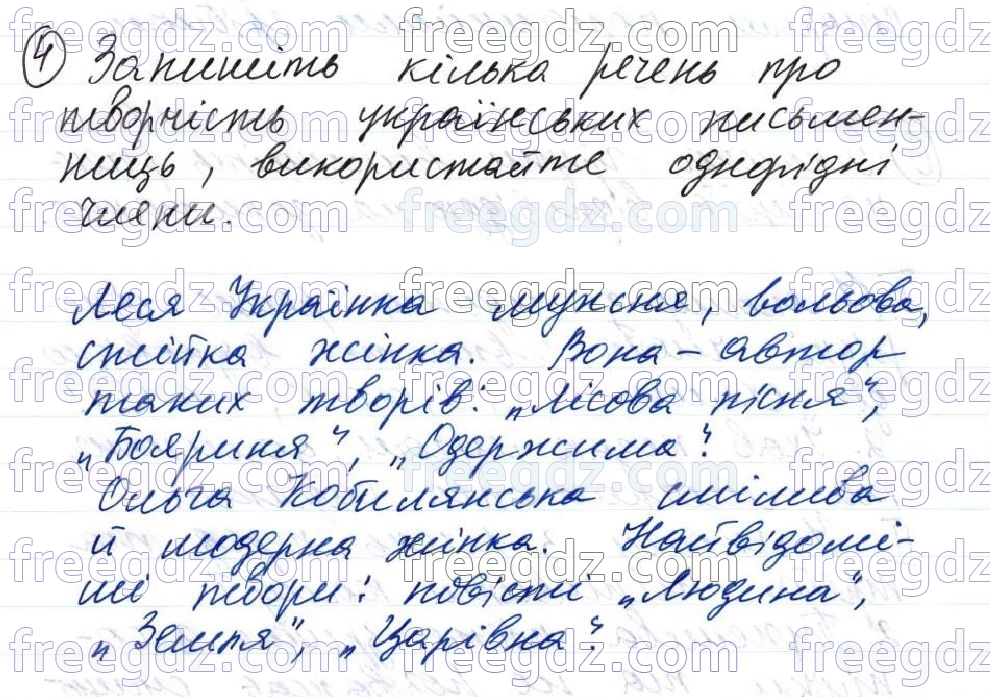 4 Запишіть кілька речень про
творчість українських письмен-
ниць, використайте однорідні
члени.
Леся Українка мужня, вольова,
стійка жінка. Вона – автор
таких творів: „Лісова пісня“,
„Бояриня“, „Одержима“.
Ольга Кобилянська смілива
й модерна жінка. Найвідомі-
ші твори: повісті „Людина“,
„Земля“, „Царівна“.